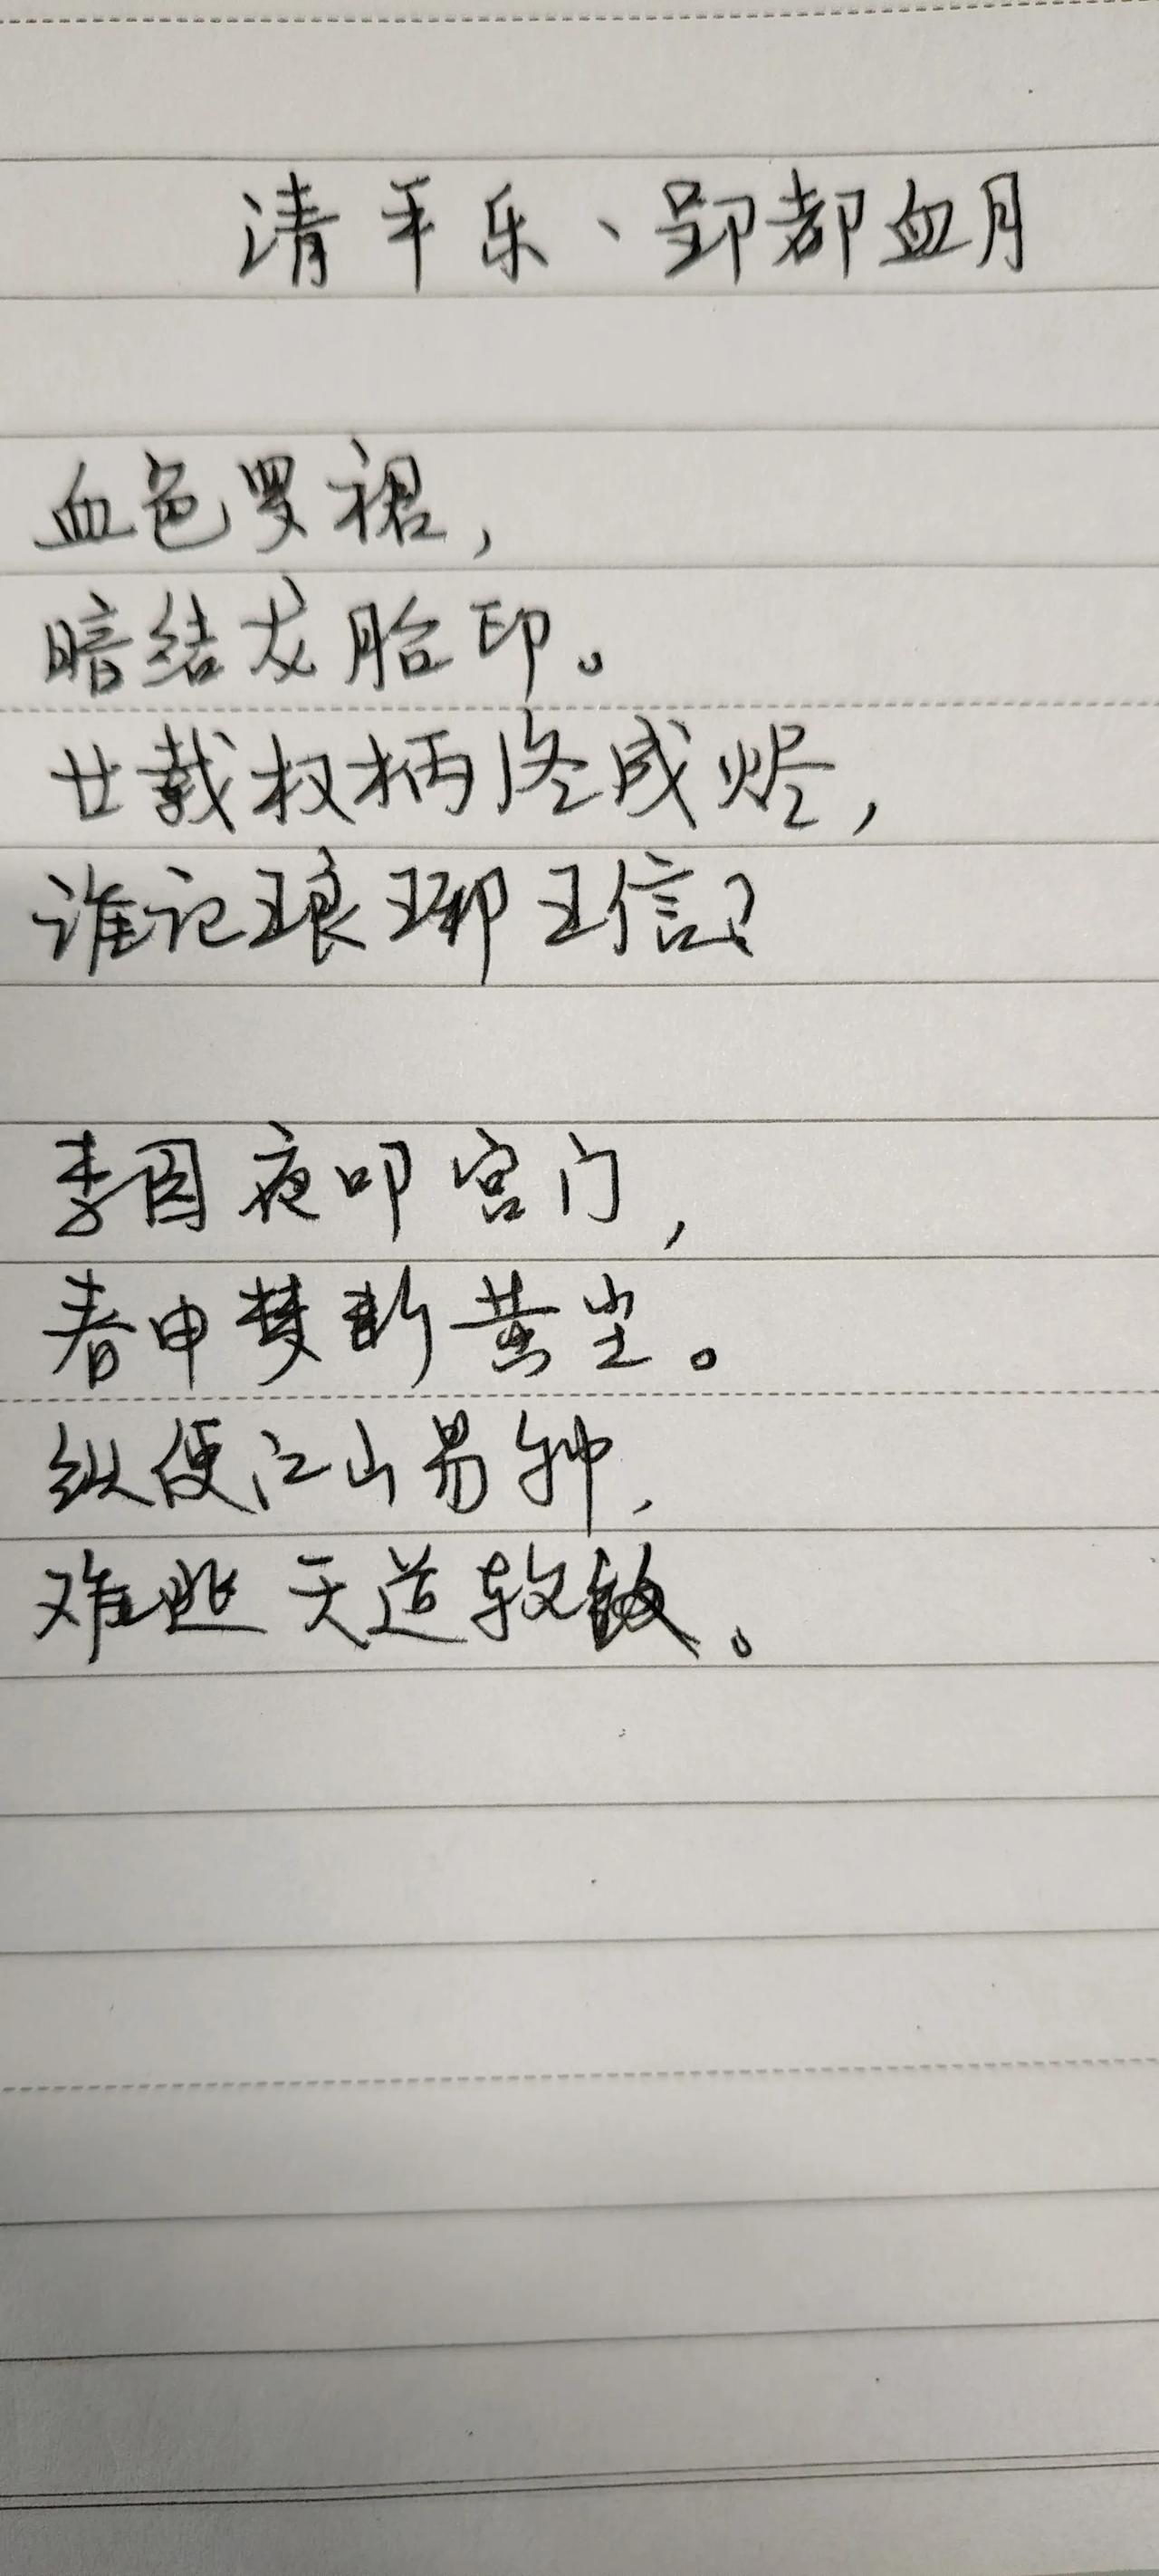 清平乐、郢都血月
血色罗裙,
暗结龙胎印。
廿载权柄终成烬,
谁记琅琊王信?
李园夜叩宫门,
春申梦断黄尘。
纵使江山易种,
难逃天道轮